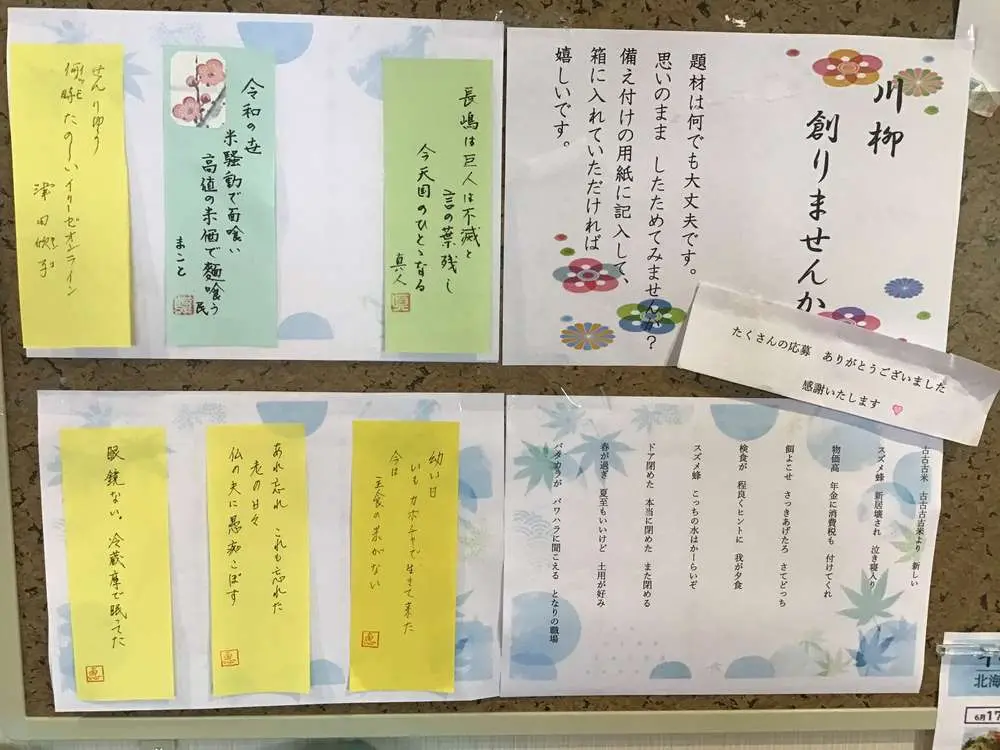 川柳
創りませんか
題材は何でも大丈夫です。
思いのまま したためてみませんか？
備え付けの用紙に記入して、
箱に入れていただければ
嬉しいです。
たくさんの応募 ありがとうございました
感謝いたします
長嶋は巨人は不滅と
言の葉残し
今天国のひとゝなる
真人
令和の世
米騒動で面喰い
高値の米価で麵喰う
まこと
民
せんりゅう
たのしいイリーゼオンライン
古古古米 古古古古米より 新しい
スズメ蜂 新居壊され 泣き寝入り
物価高 年金に消費税も 付けてくれ
餌よこせ さっきあげたろ さてどっち
検食が 程良くヒントに 我が夕食
スズメ蜂 こっちの水はかーらいぞ
ドア閉めた 本当に閉めた また閉める
春が過ぎ 夏至もいいけど 土用が好み
パタカラが パワハラに聞こえる となりの職場
幼い日
いもカボチャで生きて来た
今は 主食の米がない
恵
あれ忘れ これも忘れた
老の日々
仏の夫に愚痴こぼす
恵
眼鏡ない、冷蔵庫で眠ってた
恵
北海
6月17